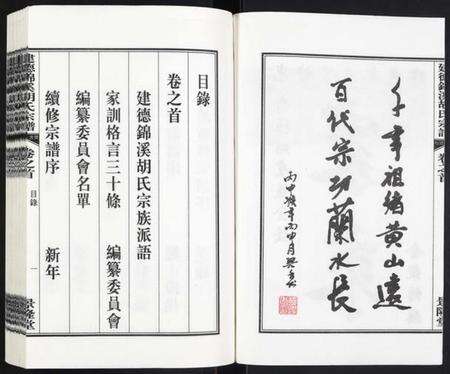 建德錦溪胡氏宗譜
卷之首
千年祖緒黃山遠
百代宗功蘭水長
丙申猴年丙申月
景隆堂
目錄
卷之首
建德錦溪胡氏宗族派語
家訓格言三十條 編纂委員會
編纂委員會名單
續修宗譜序 新年
建德錦溪胡氏宗譜
卷之首
目錄
一
景隆堂